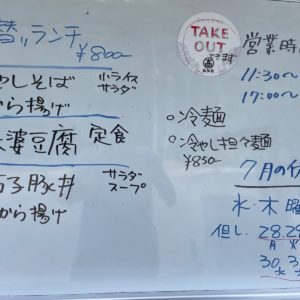 替ランチ
¥800-
やしそば
小ライス
サラダ
から揚げ
婆豆腐 定食
子豚丼
サラダ
スープ
から揚げ
TAKE
OUT
できます
営業時
11:30〜
17:00〜
○冷麺
○冷やし担々麺
¥850-
7月の
水・木
但し、28.29
月 火
30.3
水